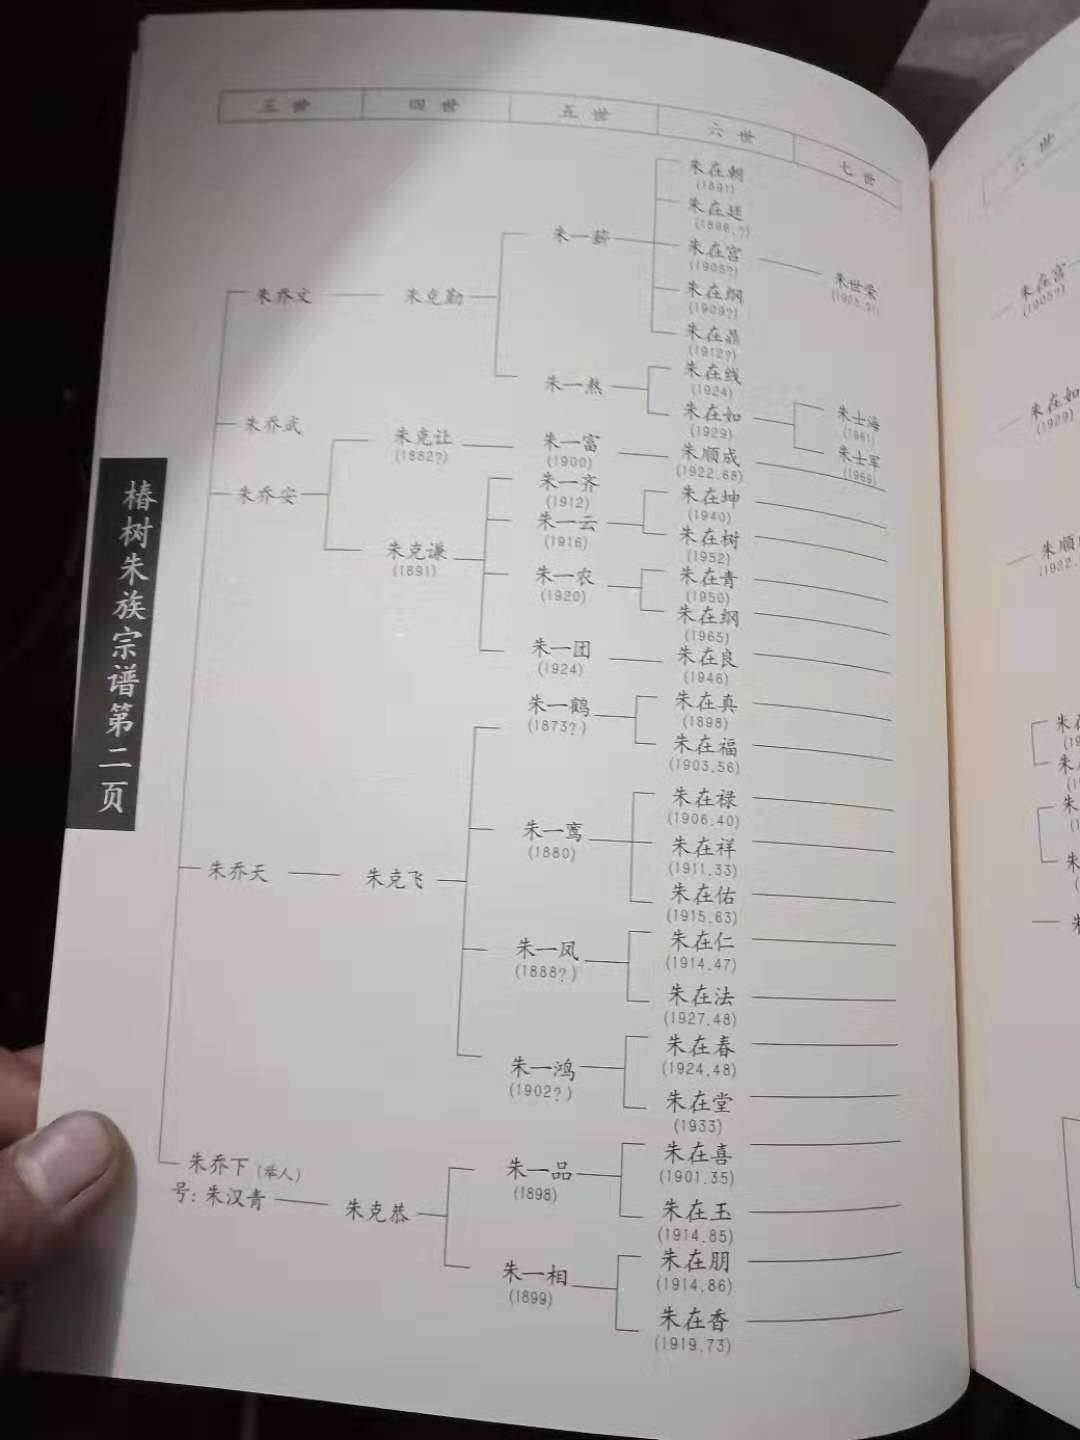 三世 四世 五世 六世 七世
椿树朱族宗谱第二页
朱乔文 朱克勤
朱一薪
朱在朝
(1891)
朱在廷
朱在宫
(1905?)
朱世荣
朱在纲
(1909?)
朱在鼎
(1912?)
朱一熬
朱在线
(1924)
朱在如
(1929)
朱士海
(1961)
朱士军
朱乔武
朱乔安
朱克让
(1882?)
朱一富
(1900)
朱顺成
(1922.68)
朱克谦
(1891)
朱一齐
(1912)
朱一云
(1916)
朱在坤
(1940)
朱在树
(1952)
朱一农
(1920)
朱在青
(1950)
朱在纲
(1965)
朱一团
(1924)
朱在良
(1946)
朱乔天 朱克飞
朱一鹤
(1873?)
朱在真
(1898)
朱在福
(1903.56)
朱一鸾
(1880)
朱在禄
(1906.40)
朱在祥
(1911.33)
朱在佑
(1915.63)
朱一凤
(1888?)
朱在仁
(1914.47)
朱在法
(1927.48)
朱一鸿
(1902?)
朱在春
(1924.48)
朱在堂
(1933)
朱乔下(举人)
号:朱汉青 朱克恭
朱一品
(1898)
朱在喜
(1901.35)
朱在玉
(1914.85)
朱一相
(1899)
朱在朋
(1914.86)
朱在香
(1919.73)
六世
朱在宫
(1905?)
朱在如
(1929)
朱顺
(1922.